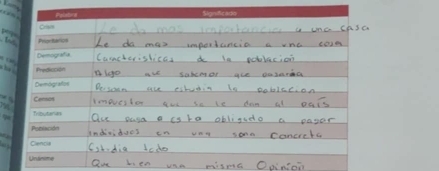 Palabra Significado
Crisis Le da mas importancia a una casa
Prioritarios Le da mas importancia a una cosa
Demografía Caracteristicas de la población
Predicción Algo que sabemos que pasara
Demógrafos Persona que estudia la poblacion
Censos Impuestos que se le dan al país
Tributarias Que paga o esta obligado a pagar
Población individuos en una zona concreta
Ciencia Estudia todo
Unánime Que tien una misma Opinión